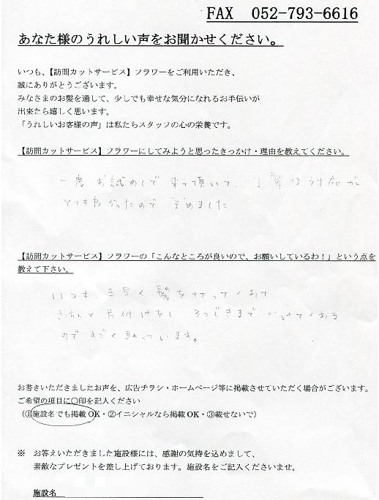 FAX 052-793-6616
あなた様のうれしい声をお聞かせください。
いつも、【訪問カットサービス】フラワーをご利用いただき、
誠にありがとうございます。
みなさまのお髪を通して、少しでも幸せな気分になれるお手伝いが
出来たら嬉しく思います。
「うれしいお客様の声」は私たちスタッフの心の栄養です。
【訪問カットサービス】フラワーにしてみようと思ったきっかけ・理由を教えてください。
一度 お試しで 来て頂いて、 丁寧な対応が
とても良かったので 決めました
【訪問カットサービス】フラワーの「こんなところが良いので、お願いしているわ！」という点を
教えて下さい。
いつも 手早く 髪を切ってくれて
きれいに 片付けをし そうじきまで かけてくれる
のですごく助っています。
お書きいただきましたお声を、広告チラシ・ホームページ等に掲載させていただく場合がございます。
ご希望の項目に○印を記入ください
（①施設名でも掲載OK・②イニシャルなら掲載OK・③載せないで）
※ お答えいただきました施設様には、感謝の気持を込めまして、
素敵なプレゼントを差し上げております。施設名をご記入くださいませ。
施設名